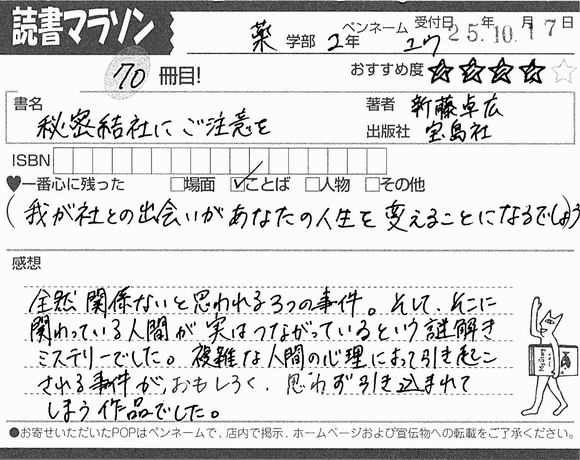 読書マラソン
薬 学部 2年 ペンネーム ユウ 受付日 25年10月17日
70 冊目! おすすめ度 ★★★★☆
書名 秘密結社にご注意を
著者 新藤卓広
出版社 宝島社
ISBN
♥一番心に残った □場面 ☑ことば □人物 □その他
(我が社との出会いがあなたの人生を変えることになるでしょう)
感想
全然関係ないと思われる3つの事件。そして、そこに
関わっている人間が実はつながっているという謎解き
ミステリーでした。複雑な人間の心理によって引き起こ
される事件が、おもしろく、思わず引き込まれて
しまう作品でした。
●お寄せいただいたPOPはペンネームで、店内で掲示、ホームページおよび宣伝物への転載をご了承ください。